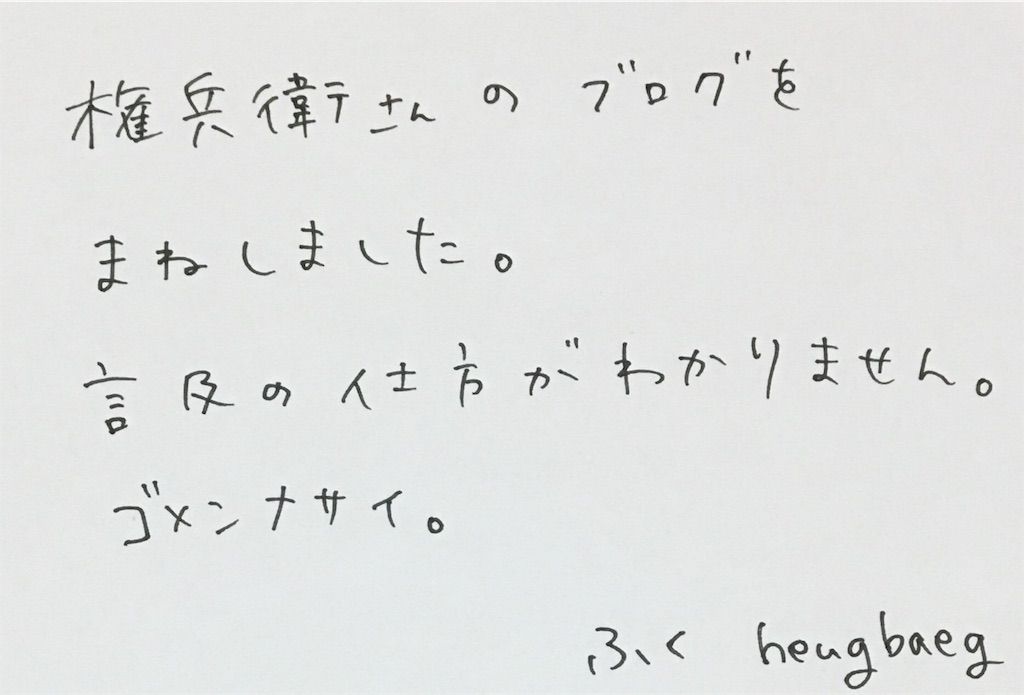 権兵衛さんのブログを
まねしました。
言及の仕方がわかりません。
ゴメンナサイ。
ふく heugbaeg